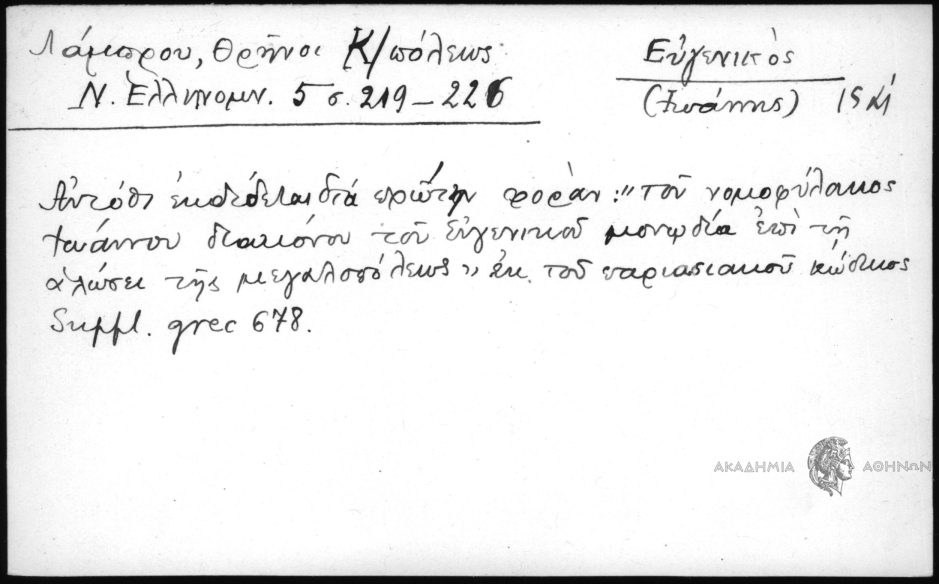 Λάμπρου, Θρῆνοι Κ/πόλεως
Ν. Ἑλληνομν. 5 σ. 219-226
Εὐγενικὸς
(Ἰωάννης)
Αὐτόθι ἐκδίδεται διὰ πρώτην φορὰν: "τοῦ νομοφύλακος
Ἰωάννου διακόνου τοῦ Εὐγενικοῦ μονῳδία ἐπὶ τῇ
ἁλώσει τῆς μεγαλοπόλεως" ἐκ τοῦ παρισιακοῦ κώδικος
Suppl. grec 678.
ΑΚΑΔΗΜΙΑ ΑΘΗΝΩΝ